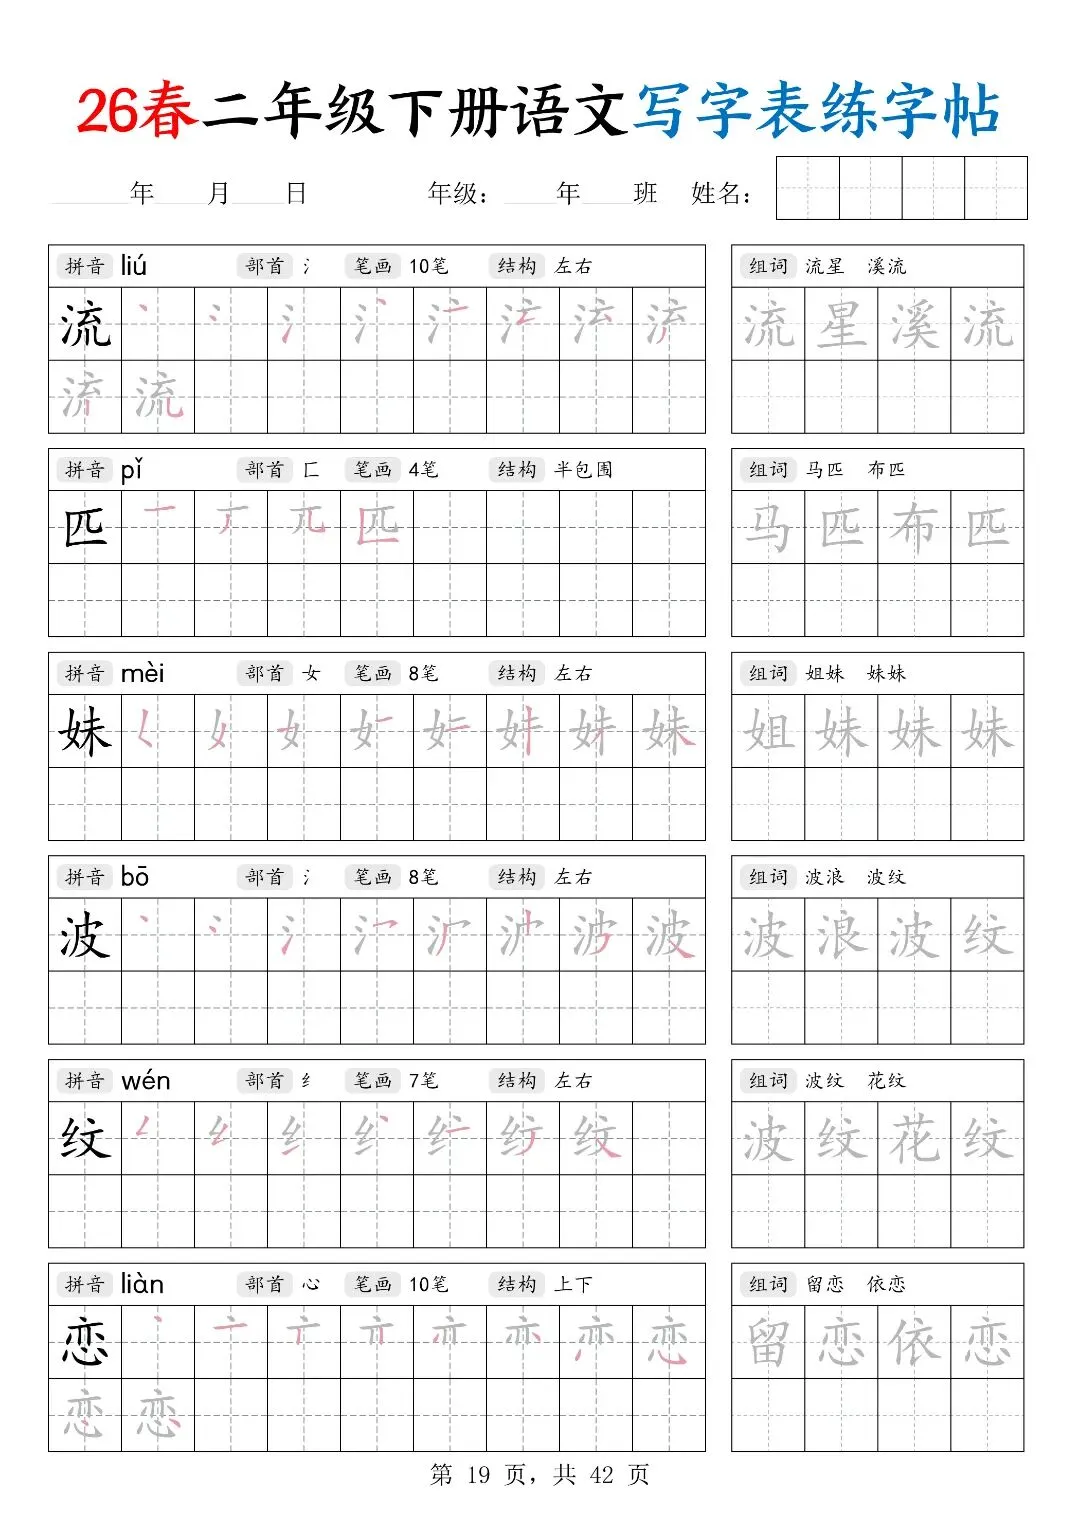 26春二年级下册语文写字表练字帖
年 月 日 年级： 年 班 姓名：
拼音 liú 部首 氵 笔画 10笔 结构 左右 组词 流星 溪流
流 流星溪流
流
拼音 pǐ 部首 匚 笔画 4笔 结构 半包围 组词 马匹 布匹
匹 匹 马匹布匹
拼音 mèi 部首 女 笔画 8笔 结构 左右 组词 姐妹 妹妹
妹 妹 姐妹妹妹
拼音 bō 部首 氵 笔画 8笔 结构 左右 组词 波浪 波纹
波 波 波浪波纹
拼音 wén 部首 纟 笔画 7笔 结构 左右 组词 波纹 花纹
纹 纹 波纹花纹
拼音 liàn 部首 心 笔画 10笔 结构 上下 组词 留恋 依恋
恋 留恋依恋
恋
第 19 页，共 42 页